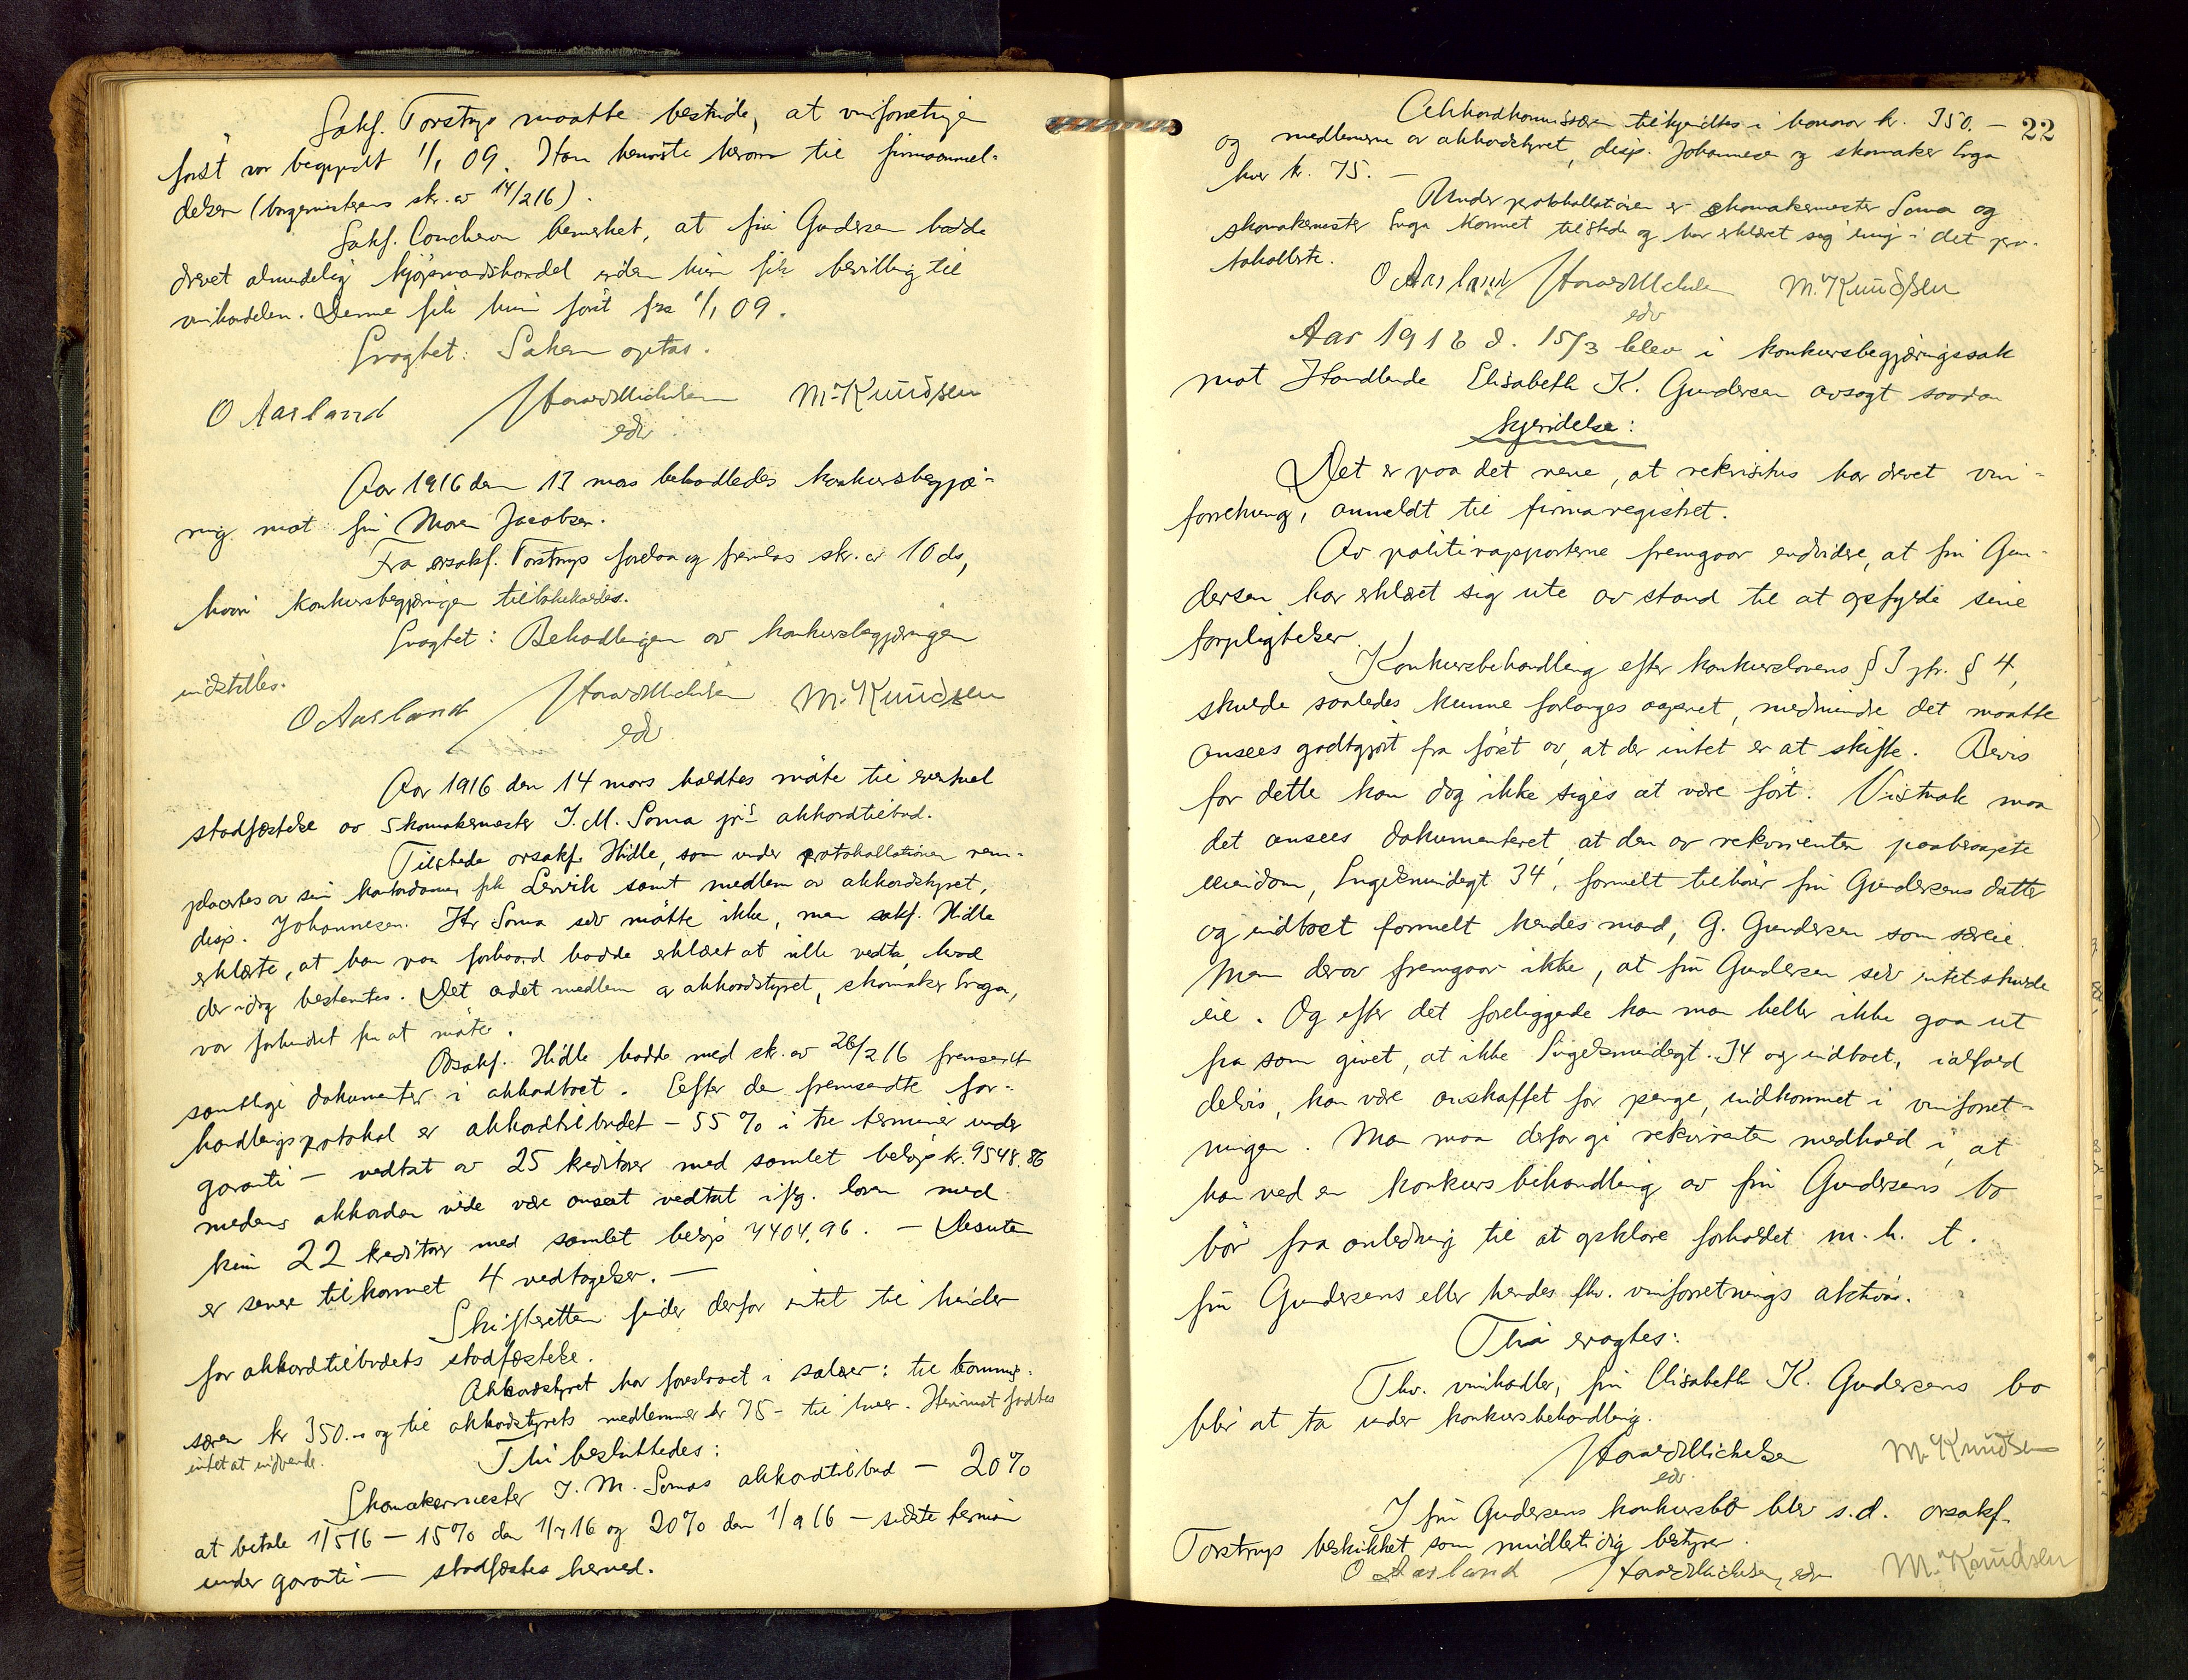 Sakf. Torstrup maatte bestride, at vinforretningen
først var begyndt 1/1 09. Han henviste herom til firmaanmel-
delsen (borgermesterens skr. av 14/2 16).
Sakf. Concheron bemerket, at fru Gundersen hadde
drevet almindelig kjøpmandshandel inden hun fik bevilling til
vinhandelen. Denne fik hun først fra 1/1 09.
Eragtet: Saken optas.
O Aarland Harald Michelsen M. Knudsen
edv.
Aar 1916 den 13 mars behandledes konkursbegjæ-
ring mot fru Maren Jacobsen.
Fra orsakf. Torstrup forelaa og fremlas skr. av 10 ds,
hvori konkursbegjæringen tilbakekaldes.
Eragtet: Behandlingen av konkursbegjæringen
indstilles.
O Aarland Harald Michelsen M. Knudsen
edv.
Aar 1916 den 14 mars holdtes møte til eventuel
stadfæstelse av skomakermester J. M. Soma jrs akkordtilbud.
Tilstede orsakf. Hidle, som under protokollationen rem-
placertes av sin kontordame frk Lervik samt medlem av akkordstyret,
disp. Johannesen. Hr Soma selv møtte ikke, men sakf. Hidle
erklærte, at han paa forhaand hadde erklæret at ville vedta, hvad
der idag bestemtes. Det andet medlem av akkordstyret, skomaker Svga,
var forhindret fra at møte.
Orsakf. Hidle hadde med skr. av 26/2 16 fremsendt
samtlige dokumenter i akkordboet. Efter den fremsendte for-
handlingsprotokol er akkordtilbudet — 55 % i tre terminer under
garanti — vedtat av 25 kreditorer med samlet beløp kr. 9548.86
medens akkorden vilde være anseet vedtat ifølg. loven med
kun 22 kreditorer med samlet beløp 7404,96. — Desuten
er senere tilkommet 4 vedtagelser. —
Skifteretten finder derfor intet til hinder
for akkordtilbudets stadfæstelse.
Akkordstyret har foreslaaet i salær: til kommis-
særen kr 350.- og til akkordstyrets medlemmer kr 75- til hver. Herimot fandtes
intet at indvende.
Thi besluttedes:
Skomakermester J. M. Somas akkordtilbud — 20%
at betale 1/5 16 — 15% den 1/7 16 og 20% den 1/9 16 — sidste termin
under garanti — stadfæstes herved.
22
Akkordkommissæren tilkjendtes i honorar kr. 350. —
og medlemmerne av akkordstyret, disp. Johannesen og skomaker Svga
hver kr. 75. —
Under protokollationen er skomakermester Soma og
skomakermester Svga kommet tilstede og har erklæret sig enig i det pro-
tokollerte.
O Aarland Harald Michelsen M. Knudsen
edv
Aar 1916 d. 15/3 blev i konkursbegjæringssak
mot Handlende Elisabeth K. Gundersen avsagt saadan
kjendelse:
Det er paa det rene, at rekvisitus har drevet vin-
forretning, anmeldt til firmaregistret.
Av politirapporterne fremgaar endvidere, at fru Gun-
dersen har erklæret sig ute av stand til at opfylde sine
forpligtelser.
Konkursbehandling efter konkurslovens § 3 jfr. § 4,
skulde saaledes kunne forlanges aapnet, medmindre det maatte
ansees godtgjort fra først av, at der intet er at skifte. Bevis
for dette kan dog ikke siges at være ført. Vistnok maa
det ansees dokumenteret, at den av rekvirenten paaberaapte
eiendom, Engelsmindegt 34, formelt tilhører fru Gundersens datter
og indboet formelt hendes mand, G. Gundersen som særeie.
Men derav fremgaar ikke, at fru Gundersen selv intet skulde
eie. Og efter det foreliggende kan man heller ikke gaa ut
fra som givet, at ikke Engelsmindegt. 34 og indboet, ialfald
delvis, kan være anskaffet for penge, indkommet i vinforret-
ningen. Man maa derfor gi rekvirenten medhold i, at
han ved en konkursbehandling av fru Gundersens bo
bør faa anledning til at opklare forholdet m. h. t.
fru Gundersens eller hendes fhv. vinforretnings aktiva.
Thi eragtes:
Fhv. vinhandler, fru Elisabeth K. Gundersens bo
blir at ta under konkursbehandling.
Harald Michelsen M. Knudsen
edv.
I fru Gundersens konkursbo blev s.d. orsakf.
Torstrup beskikket som midlertidig bestyrer.
O Aarland Harald Michelsen, edv M. Knudsen